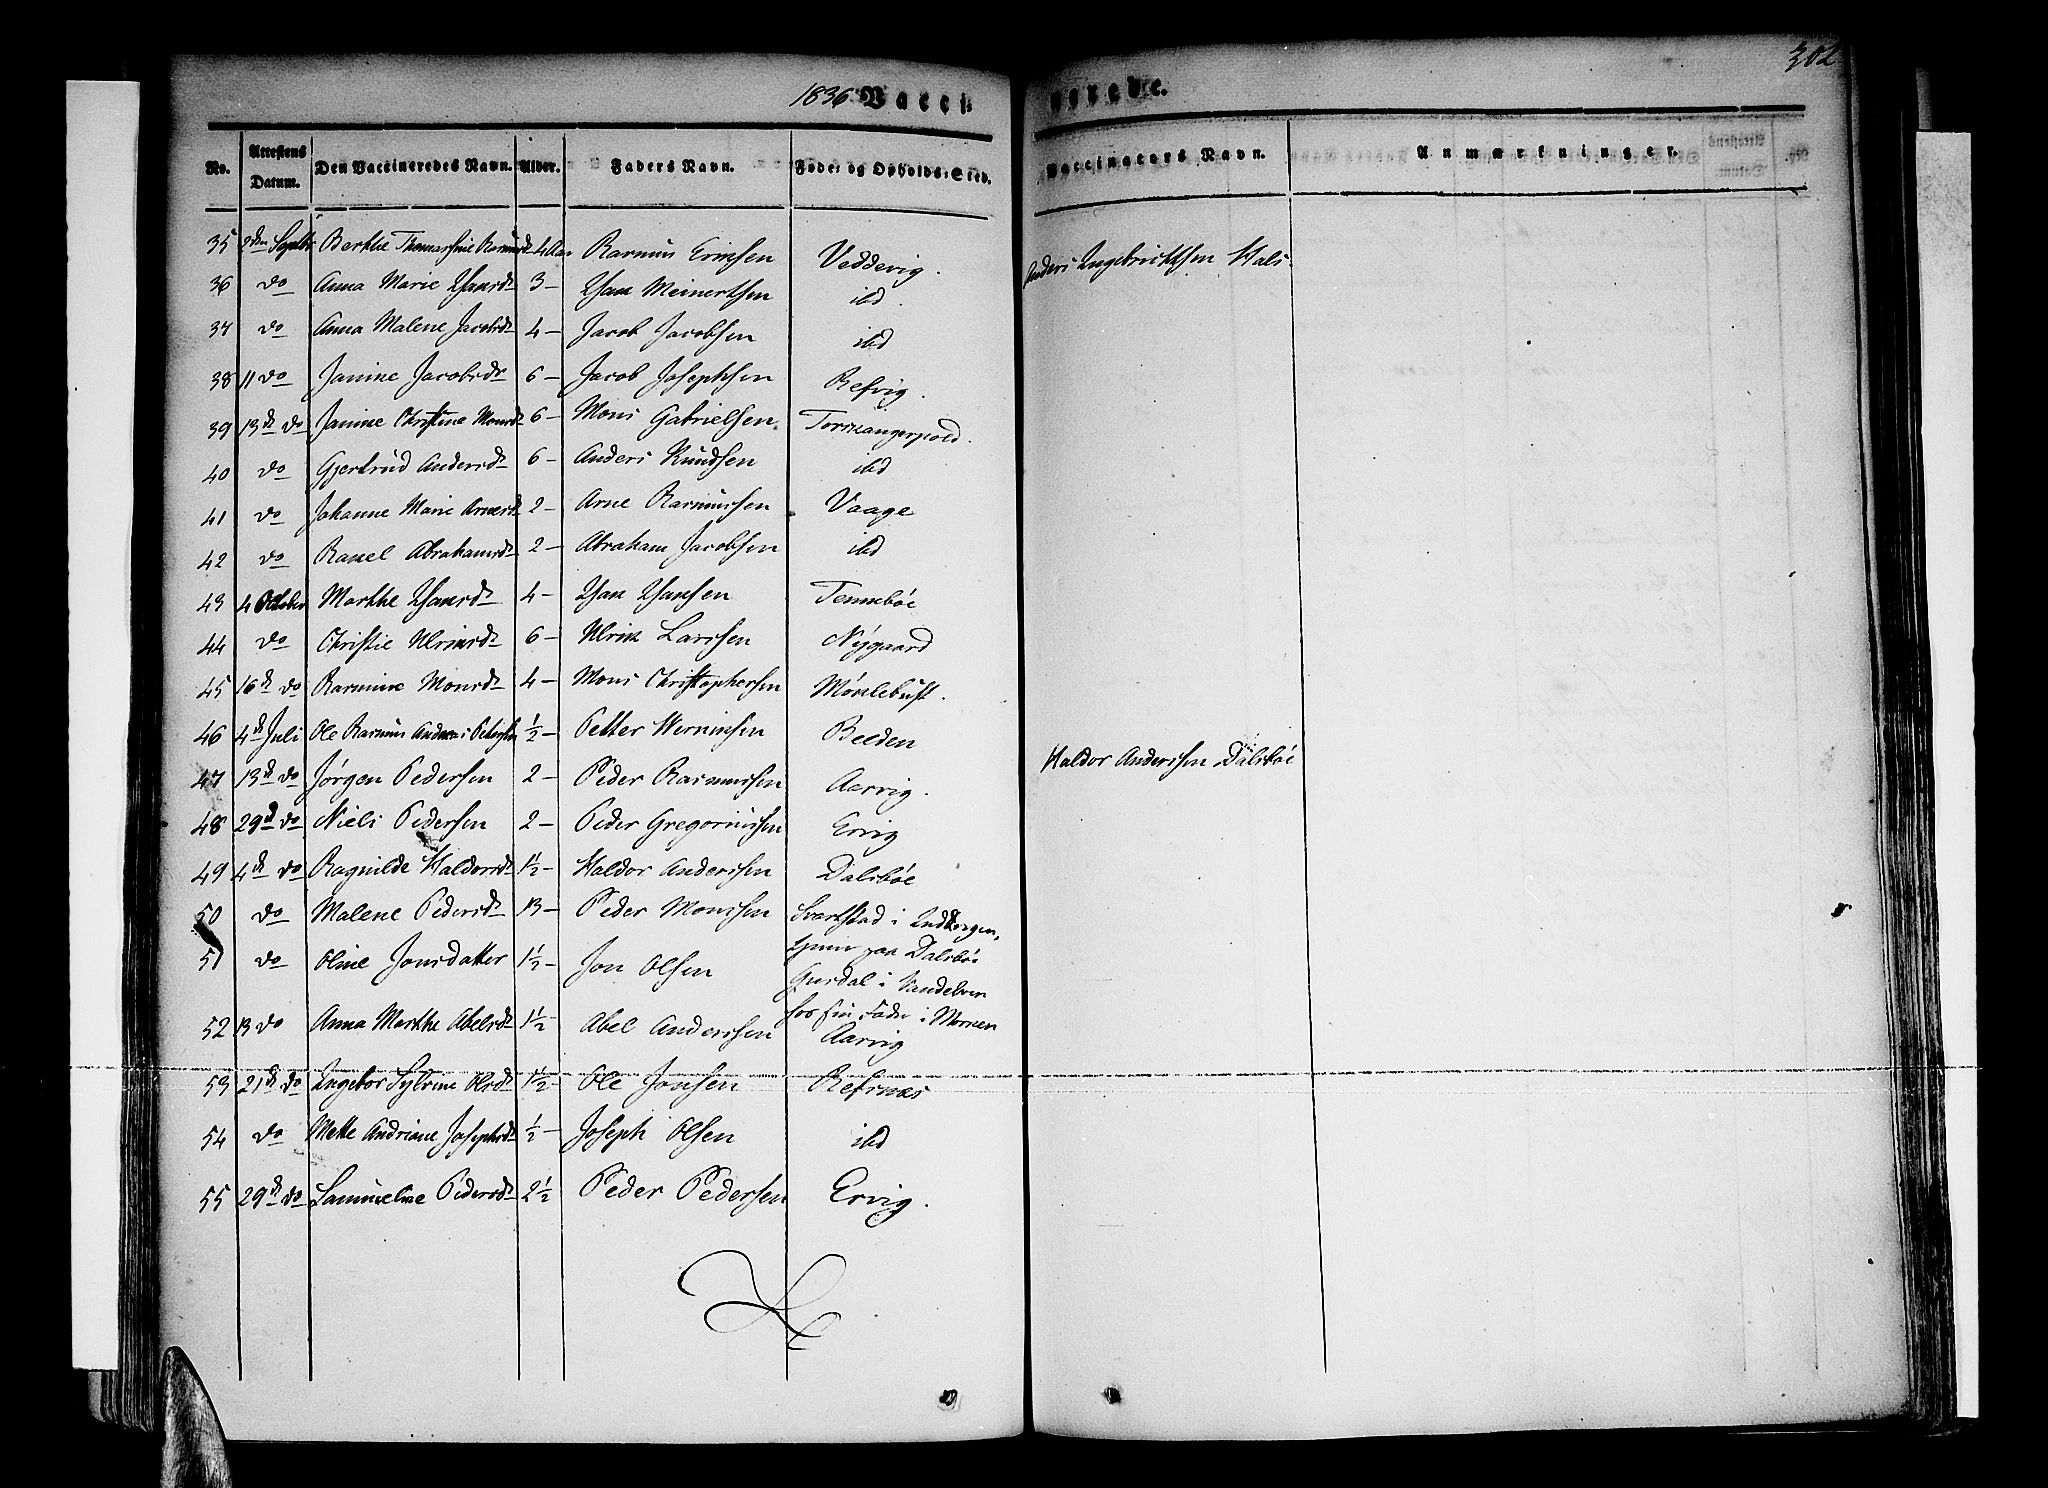 302
1836 Vaccinerede.
No. Attestens Datum. Den Vaccineredes Navn. Alder. Faders Navn. Føde- og Opholds-Sted. Vaccinators Navn. Anmærkninger.
35 2den Septbr Berthe Thomasine Rasmusdr 4 Aar Rasmus Eriksen Veddevig. Anders Ingebrichtsen Hals.
36 do Anna Marie Hansdr 3 - Hans Meinertsen ibd.
37 do Anna Malene Jacobsdr 4 - Jacob Jacobsen ibd
38 11 do Janine Jacobsdr 6 - Jacob Josephsen Refvig.
39 13de do Janine Christine Monsdr 6 - Mons Gabrielsen. Torskangerpold.
40 do Gjertrud Andersdr 6 - Anders Knudsen ibd
41 do Johanne Marie Arnesdr 2 - Arne Rasmussen Vaage
42 do Rakel Abrahamsdr 2 - Abraham Jacobsen ibd
43 4 October Marthe Hansdr 4 - Hans Hansen Tennebøe
44 do Christie Ulriksdr 6 - Ulrik Larssen Nygaard
45 16de do Rasmine Monsdr 4 - Mons Christophersen Møklebust.
46 4de Juli Ole Rasmus Andreas Pettersen 1/2 - Petter Werninsen Beeden
47 13de do Jørgen Pedersen 2 - Peder Rasmussen Aarvig. Haldor Anderssen Dalsbøe
48 29de do Niels Pedersen 2 - Peder Gregoriussen Ervig
49 4de do Ragnilde Haldorsdr 1 1/2 - Haldor Anderssen Dalsbøe
50 do Malene Pedersdr 13 - Peder Monssen Svartstad i Indbergen,
tjener paa Dalsbøe
51 do Oline Jonsdatter 1 1/2 - Jon Olsen Gusdal i Vandelven
hos sin Fader i
52 13 do Anna Marthe Abelsdr 1 1/2 Abel Anderssen Aarvig
53 21de do Ingebor Sylvine Olsdr 1 1/2 - Ole Jonsen Refsnæs
54 do Mette Andriane Josephsdr 1/2 - Joseph Olsen ibd
55 29de do Samueline Pedersdr 2 1/2 Peder Pedersen Ervig.